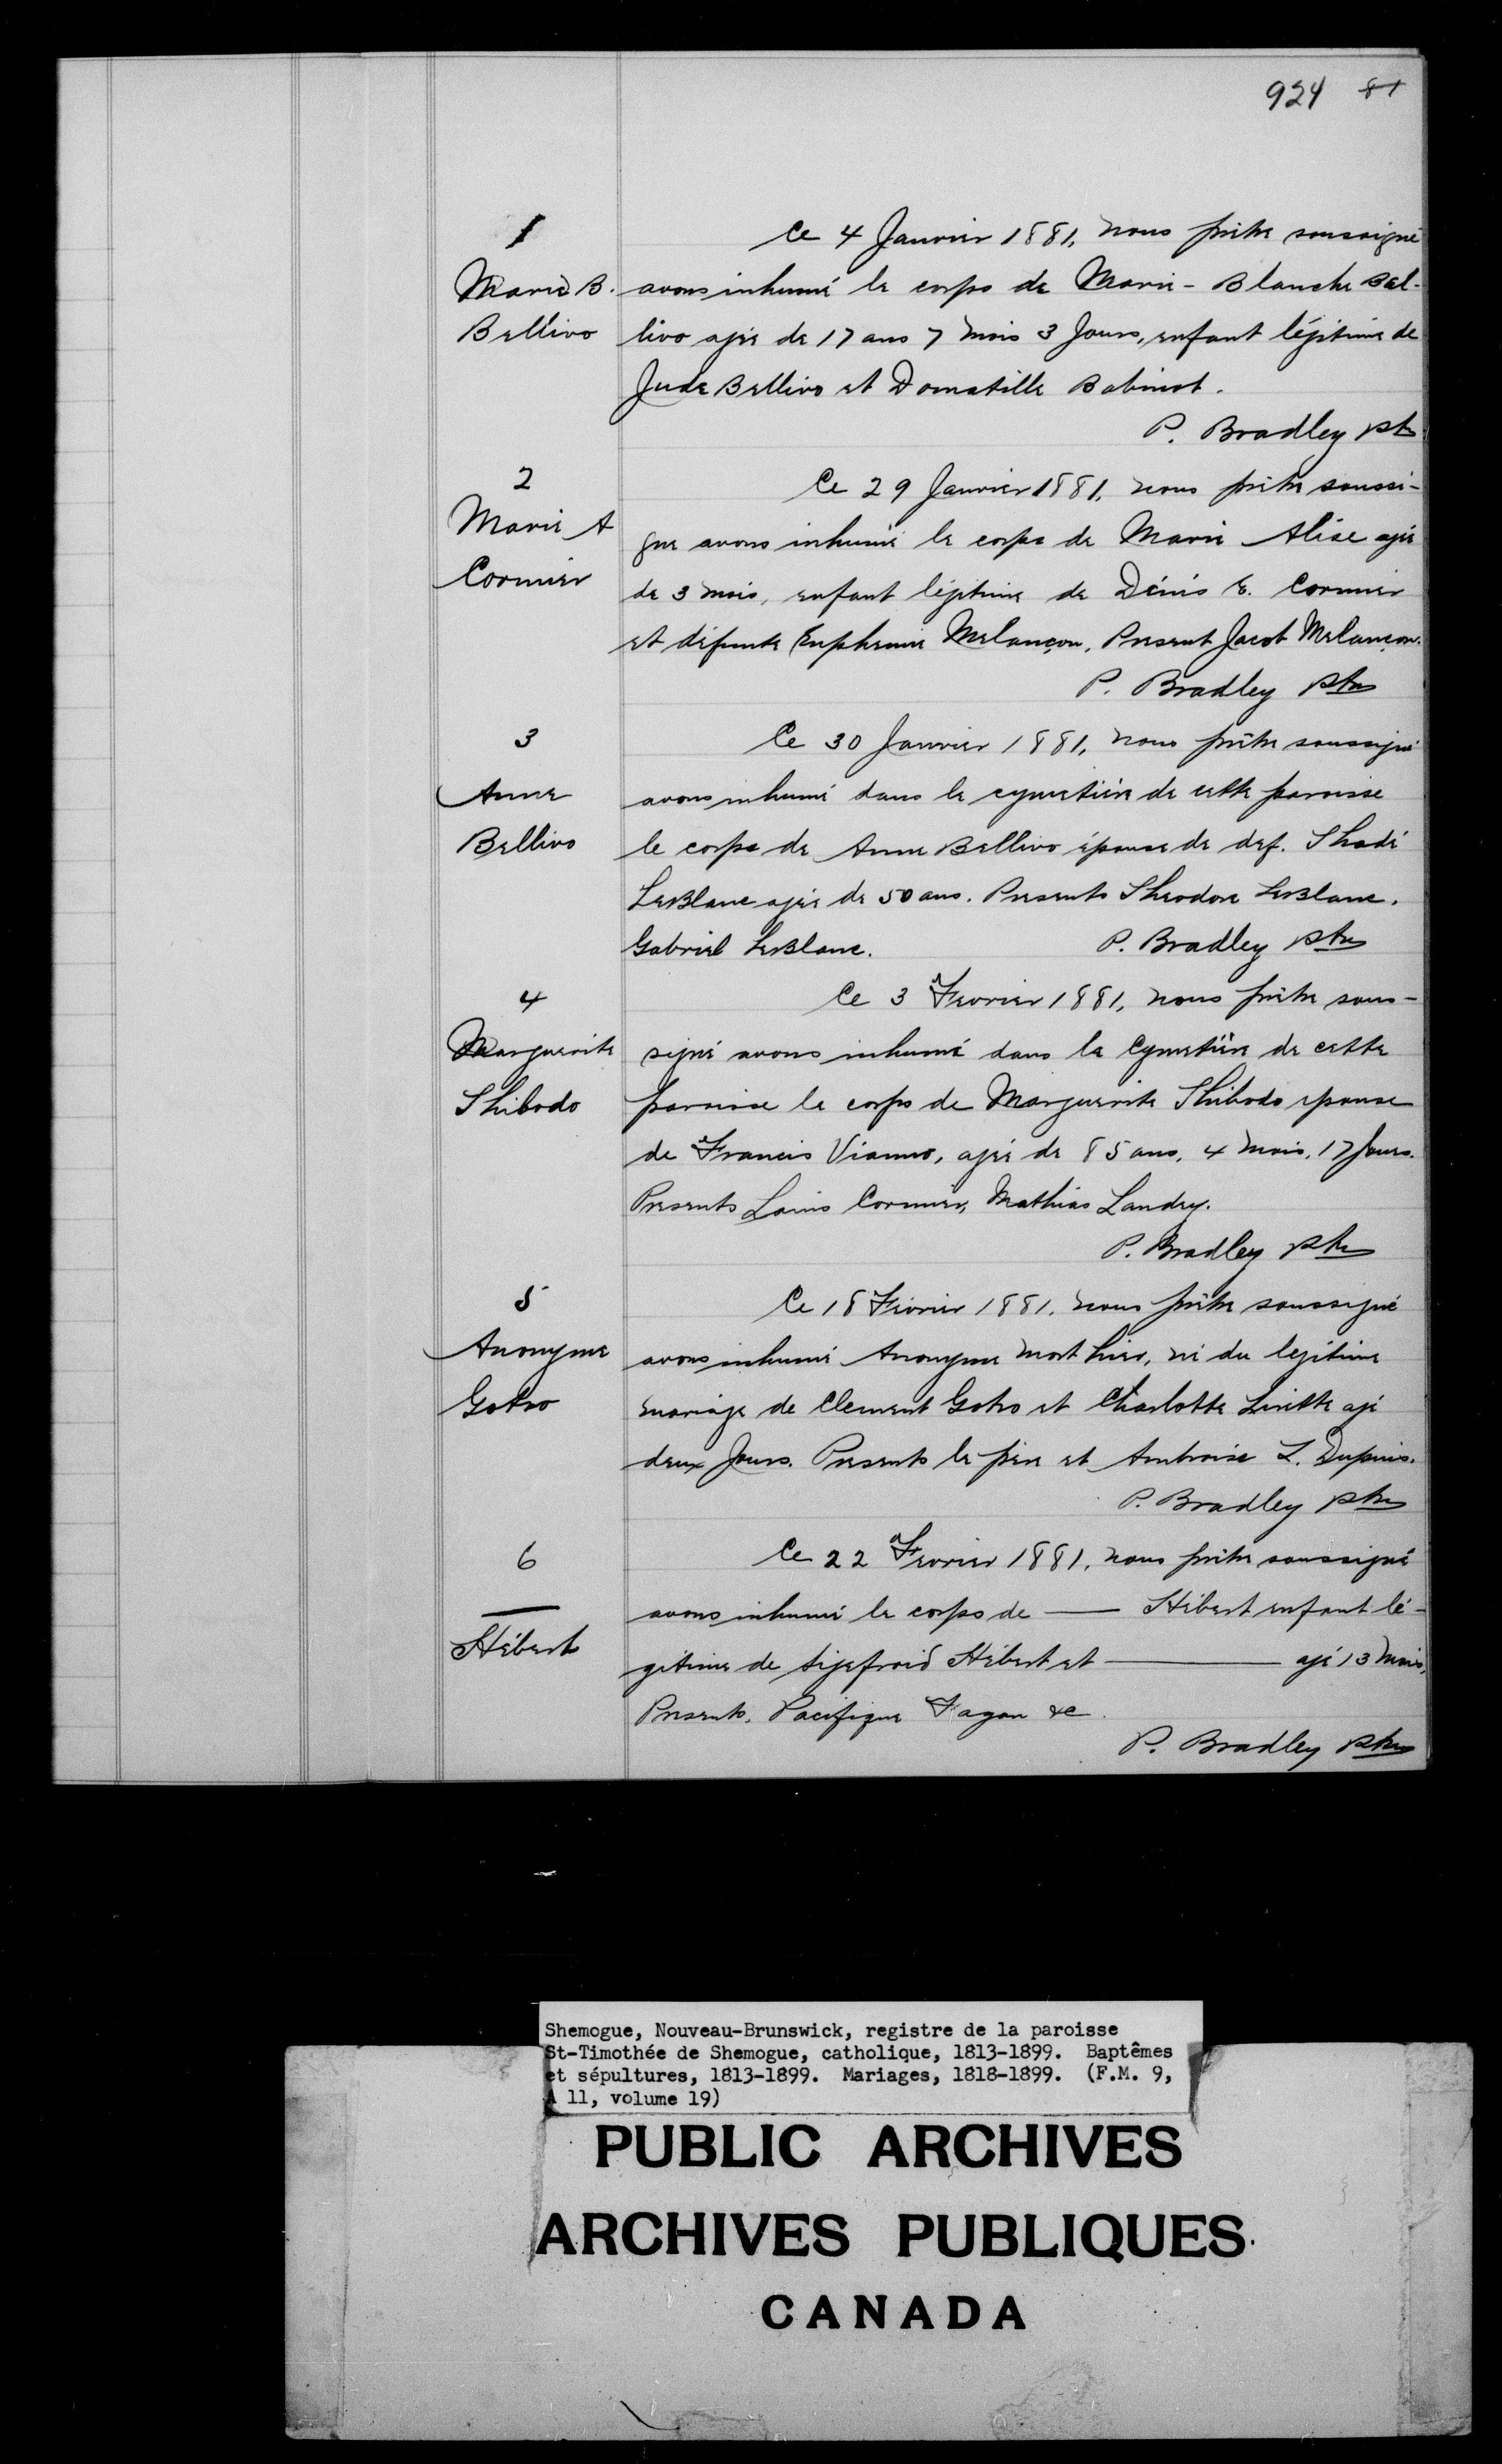 924 81
1
Marie B.
Bellivo
Ce 4 Janvier 1881, nous prêtre soussigné
avons inhumé le corps de Marie-Blanche Bel-
livo agée de 17 ans 7 mois 3 Jours, enfant légitime de
Jude Bellivo et Domatille Babinot.
P. Bradley ptr
2
Marie A
Cormier
Ce 29 Janvier 1881, nous prêtre soussi-
gne avons inhumé le corps de Marie Alise agée
de 3 mois, enfant légitime de Dénis E. Cormier
et défunte Euphemie Melançon, Present Jacob Melançon.
P. Bradley ptre
3
Anne
Bellivo
Ce 30 Janvier 1881, nous prêtre soussigné
avons inhumé dans le cymetière de cette paroisse
le corps de Anne Bellivo épouse de def. Thadé
LeBlanc agée de 50 ans. Presents Theodore LeBlanc.
Gabriel LeBlanc. P. Bradley ptre
4
Marguerite
Thibodo
Ce 3 Fevrier 1881, nous prêtre sous-
signé avons inhumé dans le Cymetière de cette
paroisse le corps de Marguerite Thibodo epouse
de Francis Vianno, agée de 85 ans, 4 mois, 17 Jours.
Presents Louis Cormier, Mathias Landry.
P. Bradley ptre
5
Anonyme
Gotro
Ce 18 Février 1881, nous prêtre soussigné
avons inhumé Anonyme mort hier, né du legitime
mariage de Clement Gotro et Charlotte Lirette agé
deux Jours. Presents le père et Ambroise L. Dupuis.
P. Bradley ptre
6
—
Hébert
Ce 22 Fevrier 1881, nous prêtre soussigné
avons inhumé le corps de — Hébert enfant lé-
gitime de Sigefroid Hébert et — agé 13 mois,
Presents, Pacifique Fagan &c.
P. Bradley ptre
Shemogue, Nouveau-Brunswick, registre de la paroisse
St-Timothée de Shemogue, catholique, 1813-1899. Baptêmes
et sépultures, 1813-1899. Mariages, 1818-1899. (F.M. 9,
A 11, volume 19)
PUBLIC ARCHIVES
ARCHIVES PUBLIQUES
CANADA